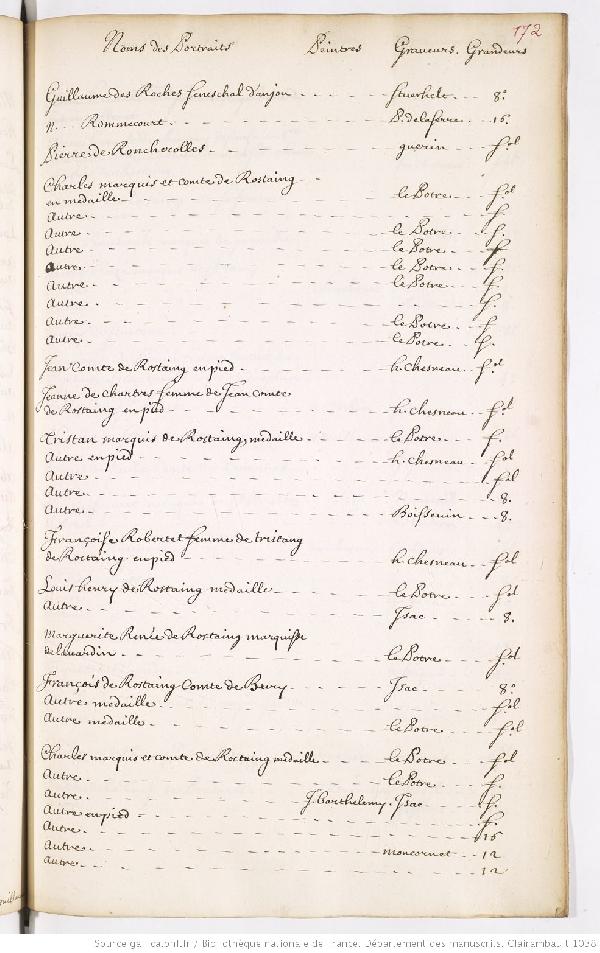 172
Noms des Portraits Peintres Graveurs. Grandeurs
Guillaume des Roches seneschal d'anjou - - - - stuerhelt - - 8.°
n. - - Rommecourt - - - - P. delaserre - - 16.
Pierre de Roncherolles - - - - guerin - - fol
Charles marquis et comte de Rostaing - -
en medaille - - - - le Potre - - fol
Autre - - - - f.
Autre - - - - le Potre - - f.
Autre - - - - le Potre - - f
Autre - - - - le Potre - - f.
Autre - - - - le Potre - - f.
Autre - - - - f.
Autre - - - - le Potre - - f
Autre - - - - le Potre - - f.
Jean Comte de Rostaing en pied - - - - h. chesneau - - fol
Jeanne de chartres femme de Jean comte
de Rostaing en pied - - - - h. chesneau - - fol
Tristan marquis de Rostaing, medaille - - - - le Potre - - f.
Autre en pied - - - - h. chesneau - - fol
Autre - - - - fol
Autre - - - - 8.
Autre - - - - Boissevin - - 8.
Françoise Robertet femme de tristang
de Rostaing en pied - - - - h. chesneau - - fol
Louis henry de Rostaing medaille - - - - le Potre - - fol
Autre - - - - Isac - - 8.
Marguerite Renée de Rostaing marquise
de lavardin - - - - le Potre - - fol
François de Rostaing Comte de Bury - - - - Isac - - 8.°
Autre medaille - - - - fol
Autre medaille - - - - le Potre - - fol
Charles marquis et comte de Rostaing medaille - - le Potre - - fol
Autre - - - - le Potre - - f.
Autre - - - - J. barthelemy. Isac - - f.
Autre en pied - - - - f.
Autre - - - - 16
Autre - - - - moncornet - - 12
Autre - - - - 12
Source gallica.bnf.fr / Bibliothèque nationale de France. Département des manuscrits. Clairambault 1038